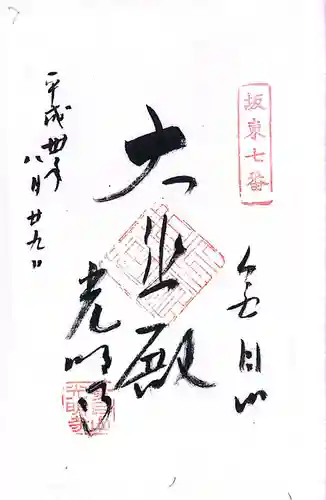 坂東七番
金目山
大悲殿
光明寺
平成丗年
八月廿九日